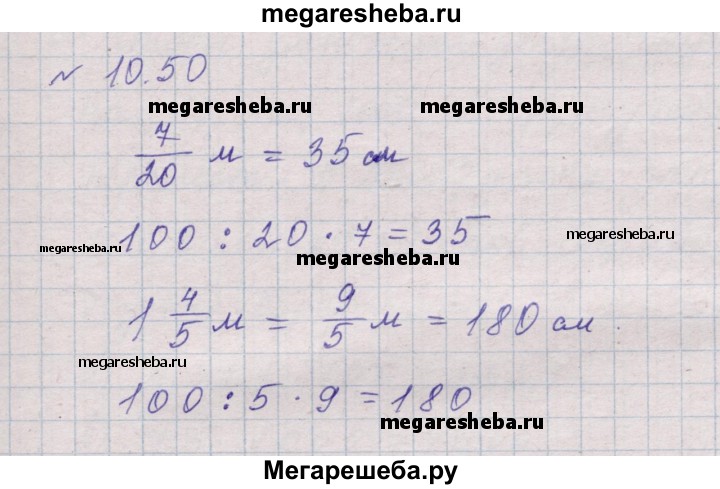 megaresheba.ru
№ 10.50
megaresheba.ru megaresheba.ru
7/20 м = 35 см
megaresheba.ru 100 : 20 · 7 = 35 megaresheba.ru
megaresheba.ru
1 4/5 м = 9/5 м = 180 см.
megaresheba.ru
100 : 5 · 9 = 180
megaresheba.ru
Мегарешеба.ру